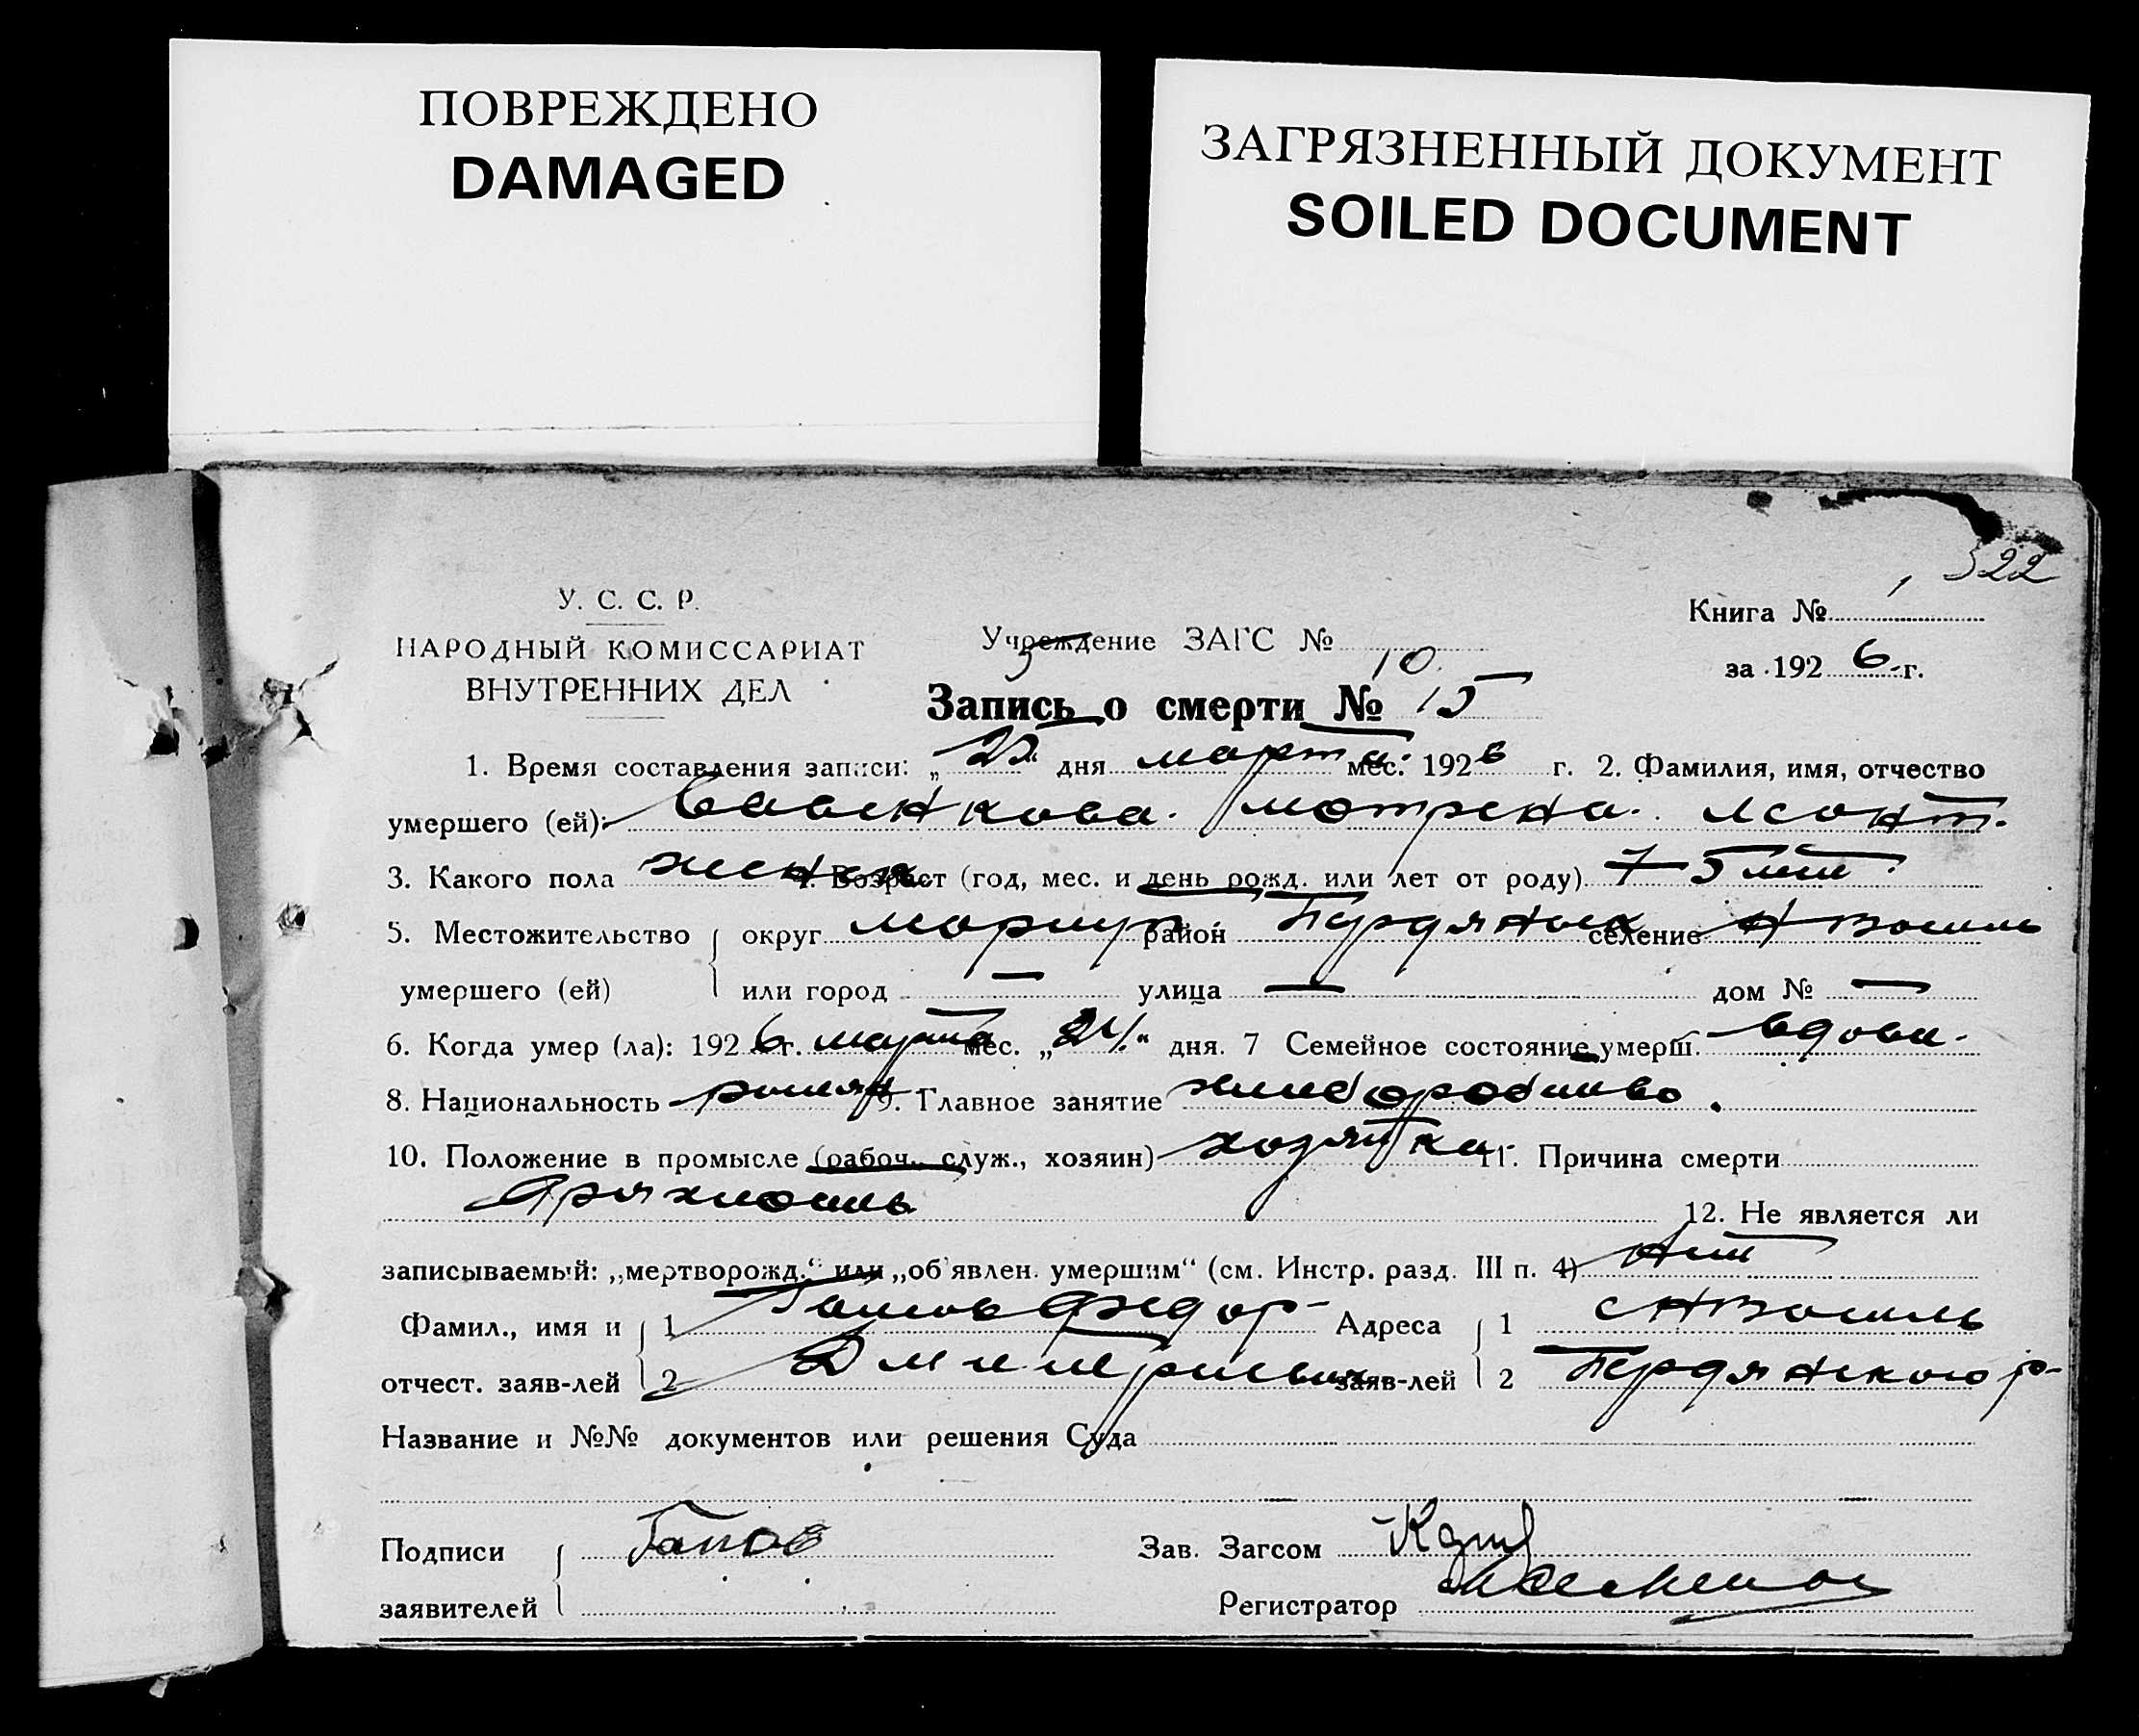 ПОВРЕЖДЕНО
DAMAGED
ЗАГРЯЗНЕННЫЙ ДОКУМЕНТ
SOILED DOCUMENT
322
У. С. С. Р.
НАРОДНЫЙ КОМИССАРИАТ
ВНУТРЕННИХ ДЕЛ
Учреждение ЗАГС №
Книга №
за 1926 г.
10
Запись о смерти № 15
1. Время составления записи: „25“ дня марта мес. 1926 г. 2. Фамилия, имя, отчество
умершего (ей): Савенкова Мотрена Леонт.
3. Какого пола женск 4. Возраст (год, мес. и день рожд. или лет от роду) 75 лет
5. Местожительство округ Мариуп. район Бердянск селение
умершего (ей) или город — улица — дом № —
6. Когда умер (ла): 1926 г. марта мес. „24“ дня. 7 Семейное состояние умерш. вдова
8. Национальность 9. Главное занятие хлебородство.
10. Положение в промысле (рабоч., служ., хозяин) хозяйка 11. Причина смерти
дряхлость
12. Не является ли
записываемый: „мертворожд.“ или „об'явлен. умершим“ (см. Инстр. разд. III п. 4) нет
Фамил., имя и 1 Гапов Федор Адреса 1
отчест. заяв-лей 2 Дмитриевич заяв-лей 2 Бердянского р-
Название и №№ документов или решения Суда
Подписи Гапов Зав. Загсом
заявителей Регистратор